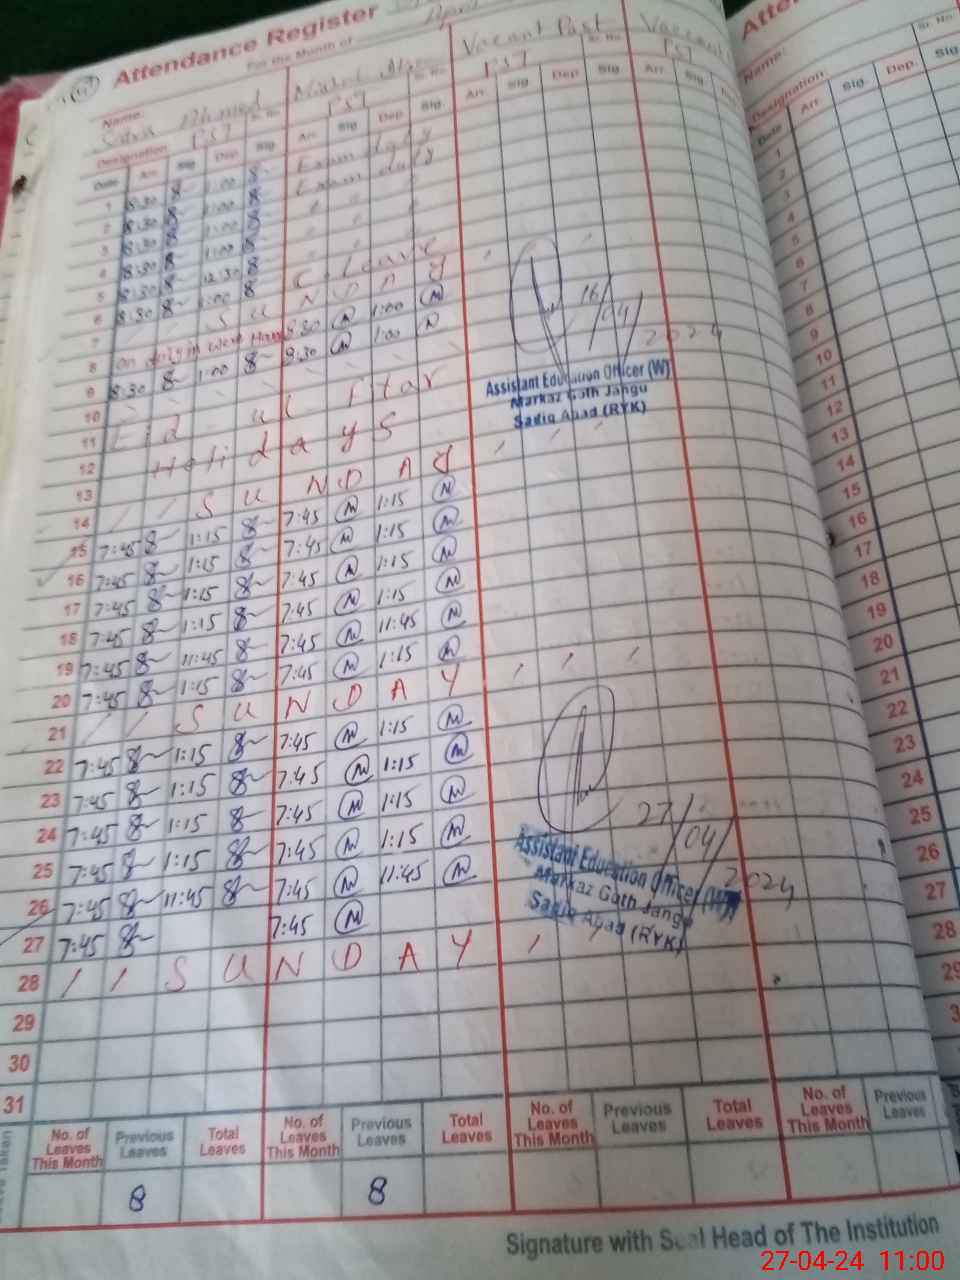 Attendance Register
For the Month of April
Name: Vacant Post Vaccant
PST PST PST PST
Designation
Date Arr. Sig Dep. Sig Arr. Sig Dep Sig. Arr. Sig Dep Sig Arr. Sig
1 8:30 1:00 Exam duty
2 8:30 1:00 Exam duty
3 8:30 1:00 " " "
4 8:30 1:00 " " "
5 8:30 12:30 C. Leave
6 8:30 1:00
7 / / S U N D A Y / /
8 8:30 1:00
9 8:30 1:00 8:30 1:00
10
11 Eid ul Fitar
12 Holidays
13
14 / / S U N D A Y / / /
15 7:45 1:15 7:45 1:15
16 7:45 1:15 7:45 1:15
17 7:45 1:15 7:45 1:15
18 7:45 1:15 7:45 1:15
19 7:45 11:45 7:45 11:45
20 7:45 1:15 7:45 1:15
21 / / S U N D A Y / / /
22 7:45 1:15 7:45 1:15
23 7:45 1:15 7:45 1:15
24 7:45 1:15 7:45 1:15
25 7:45 1:15 7:45 1:15
26 7:45 11:45 7:45 11:45
27 7:45 7:45
28 / / S U N D A Y / /
29
30
31
16/04/2024
Assistant Education Officer (W)
Markaz Goth Jangu
Sadiq Abad (RYK)
27/04/2024
Assistant Education Officer (W)
Markaz Goth Jangu
Sadiq Abad (RYK)
No. of Leaves This Month Previous Leaves Total Leaves No. of Leaves This Month Previous Leaves Total Leaves No. of Leaves This Month Previous Leaves Total Leaves No. of Leaves This Month Previous Leaves
8 8
Signature with Seal Head of The Institution
Name:
Sr. No.
Designation
Date Arr. Sig. Dep. Sig
1
2
3
4
5
6
7
8
9
10
11
12
13
14
15
16
17
18
19
20
21
22
23
24
25
26
27
28
29
27-04-24 11:00